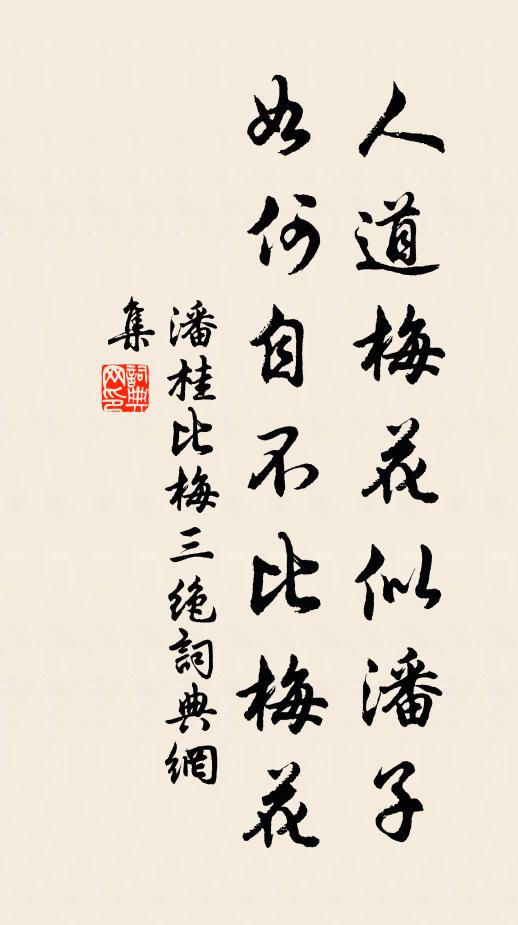 人道梅花似潘子
如何自不比梅花
潘桂比梅三绝詞典網
集
詞典
网印